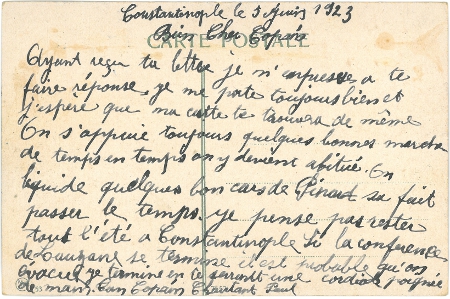 Constantinople le 5 Juin 1923
Bien Cher Copain
CARTE POSTALE
Ayant reçu ta lettre je m'empresse a te
faire réponse. je me porte toujours bien et
j'espère que ma carte te trouvera de même
On s'appuie toujours quelques bonnes marches
de temps en temps on y devient abitué. On
liquide quelques bon cars de Pinard sa fait
passer le temps. je pense pas rester
tout l'été a Constantinople Si la conference
de Lauzane se termine il est probable qu'on
évacue je termine en te serrant une cordiale poignée
de main. Ton Copain Paul